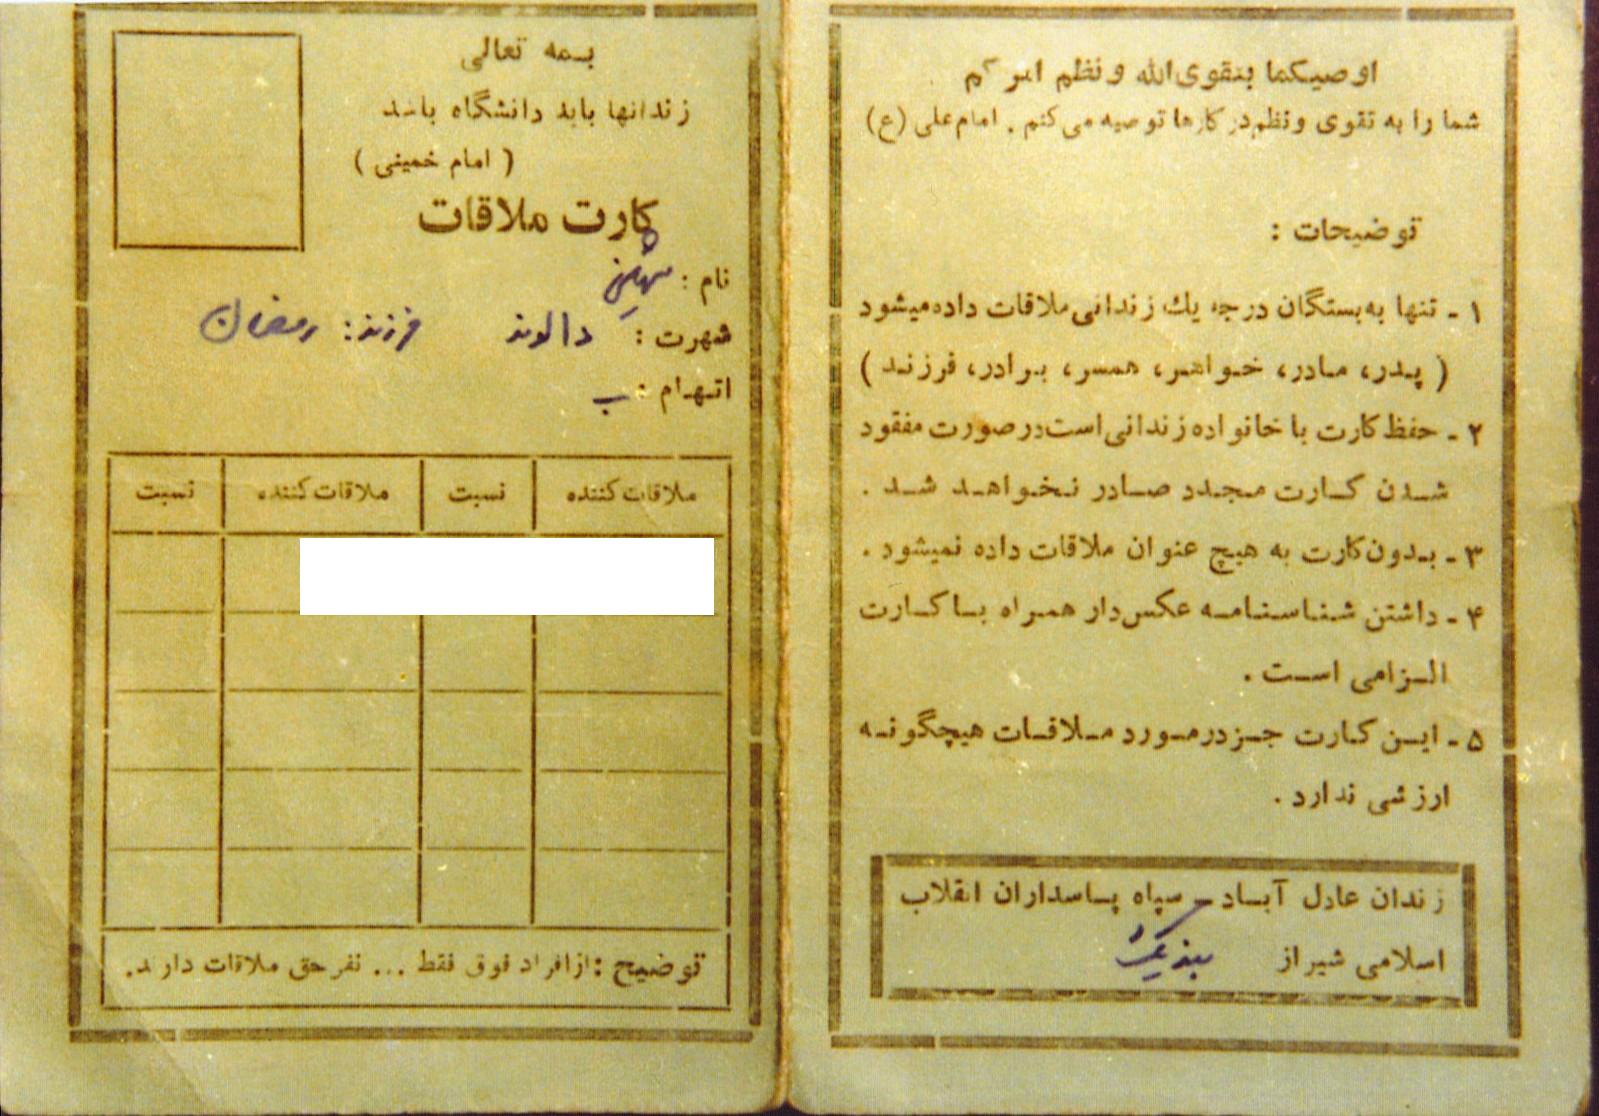 بسمه تعالی
زندانها باید دانشگاه باشد
( امام خمینی )
کارت ملاقات
نام : مهین
شهرت : دالوند فرزند : رمضان
اتهام : ب
ملاقات کننده نسبت ملاقات کننده نسبت
توضیح : از افراد فوق فقط ... نفر حق ملاقات دارند.
اوصیکما بتقوی الله و نظم امرکم
شما را به تقوی و نظم در کارها توصیه می کنم . امام علی (ع)
توضیحات :
۱ - تنها به بستگان درجه یك زندانی ملاقات داده میشود
( پدر، مادر، خواهر، همسر، برادر، فرزند )
۲ - حفظ کارت با خانواده زندانی است در صورت مفقود
شدن کارت مجدد صادر نخواهد شد .
۳ - بدون کارت به هیچ عنوان ملاقات داده نمیشود .
۴ - داشتن شناسنامه عکس دار همراه با کارت
الزامی است .
۵ - این کارت جز در مورد ملاقات هیچگونه
ارزشی ندارد .
زندان عادل آباد - سپاه پاسداران انقلاب
اسلامی شیراز